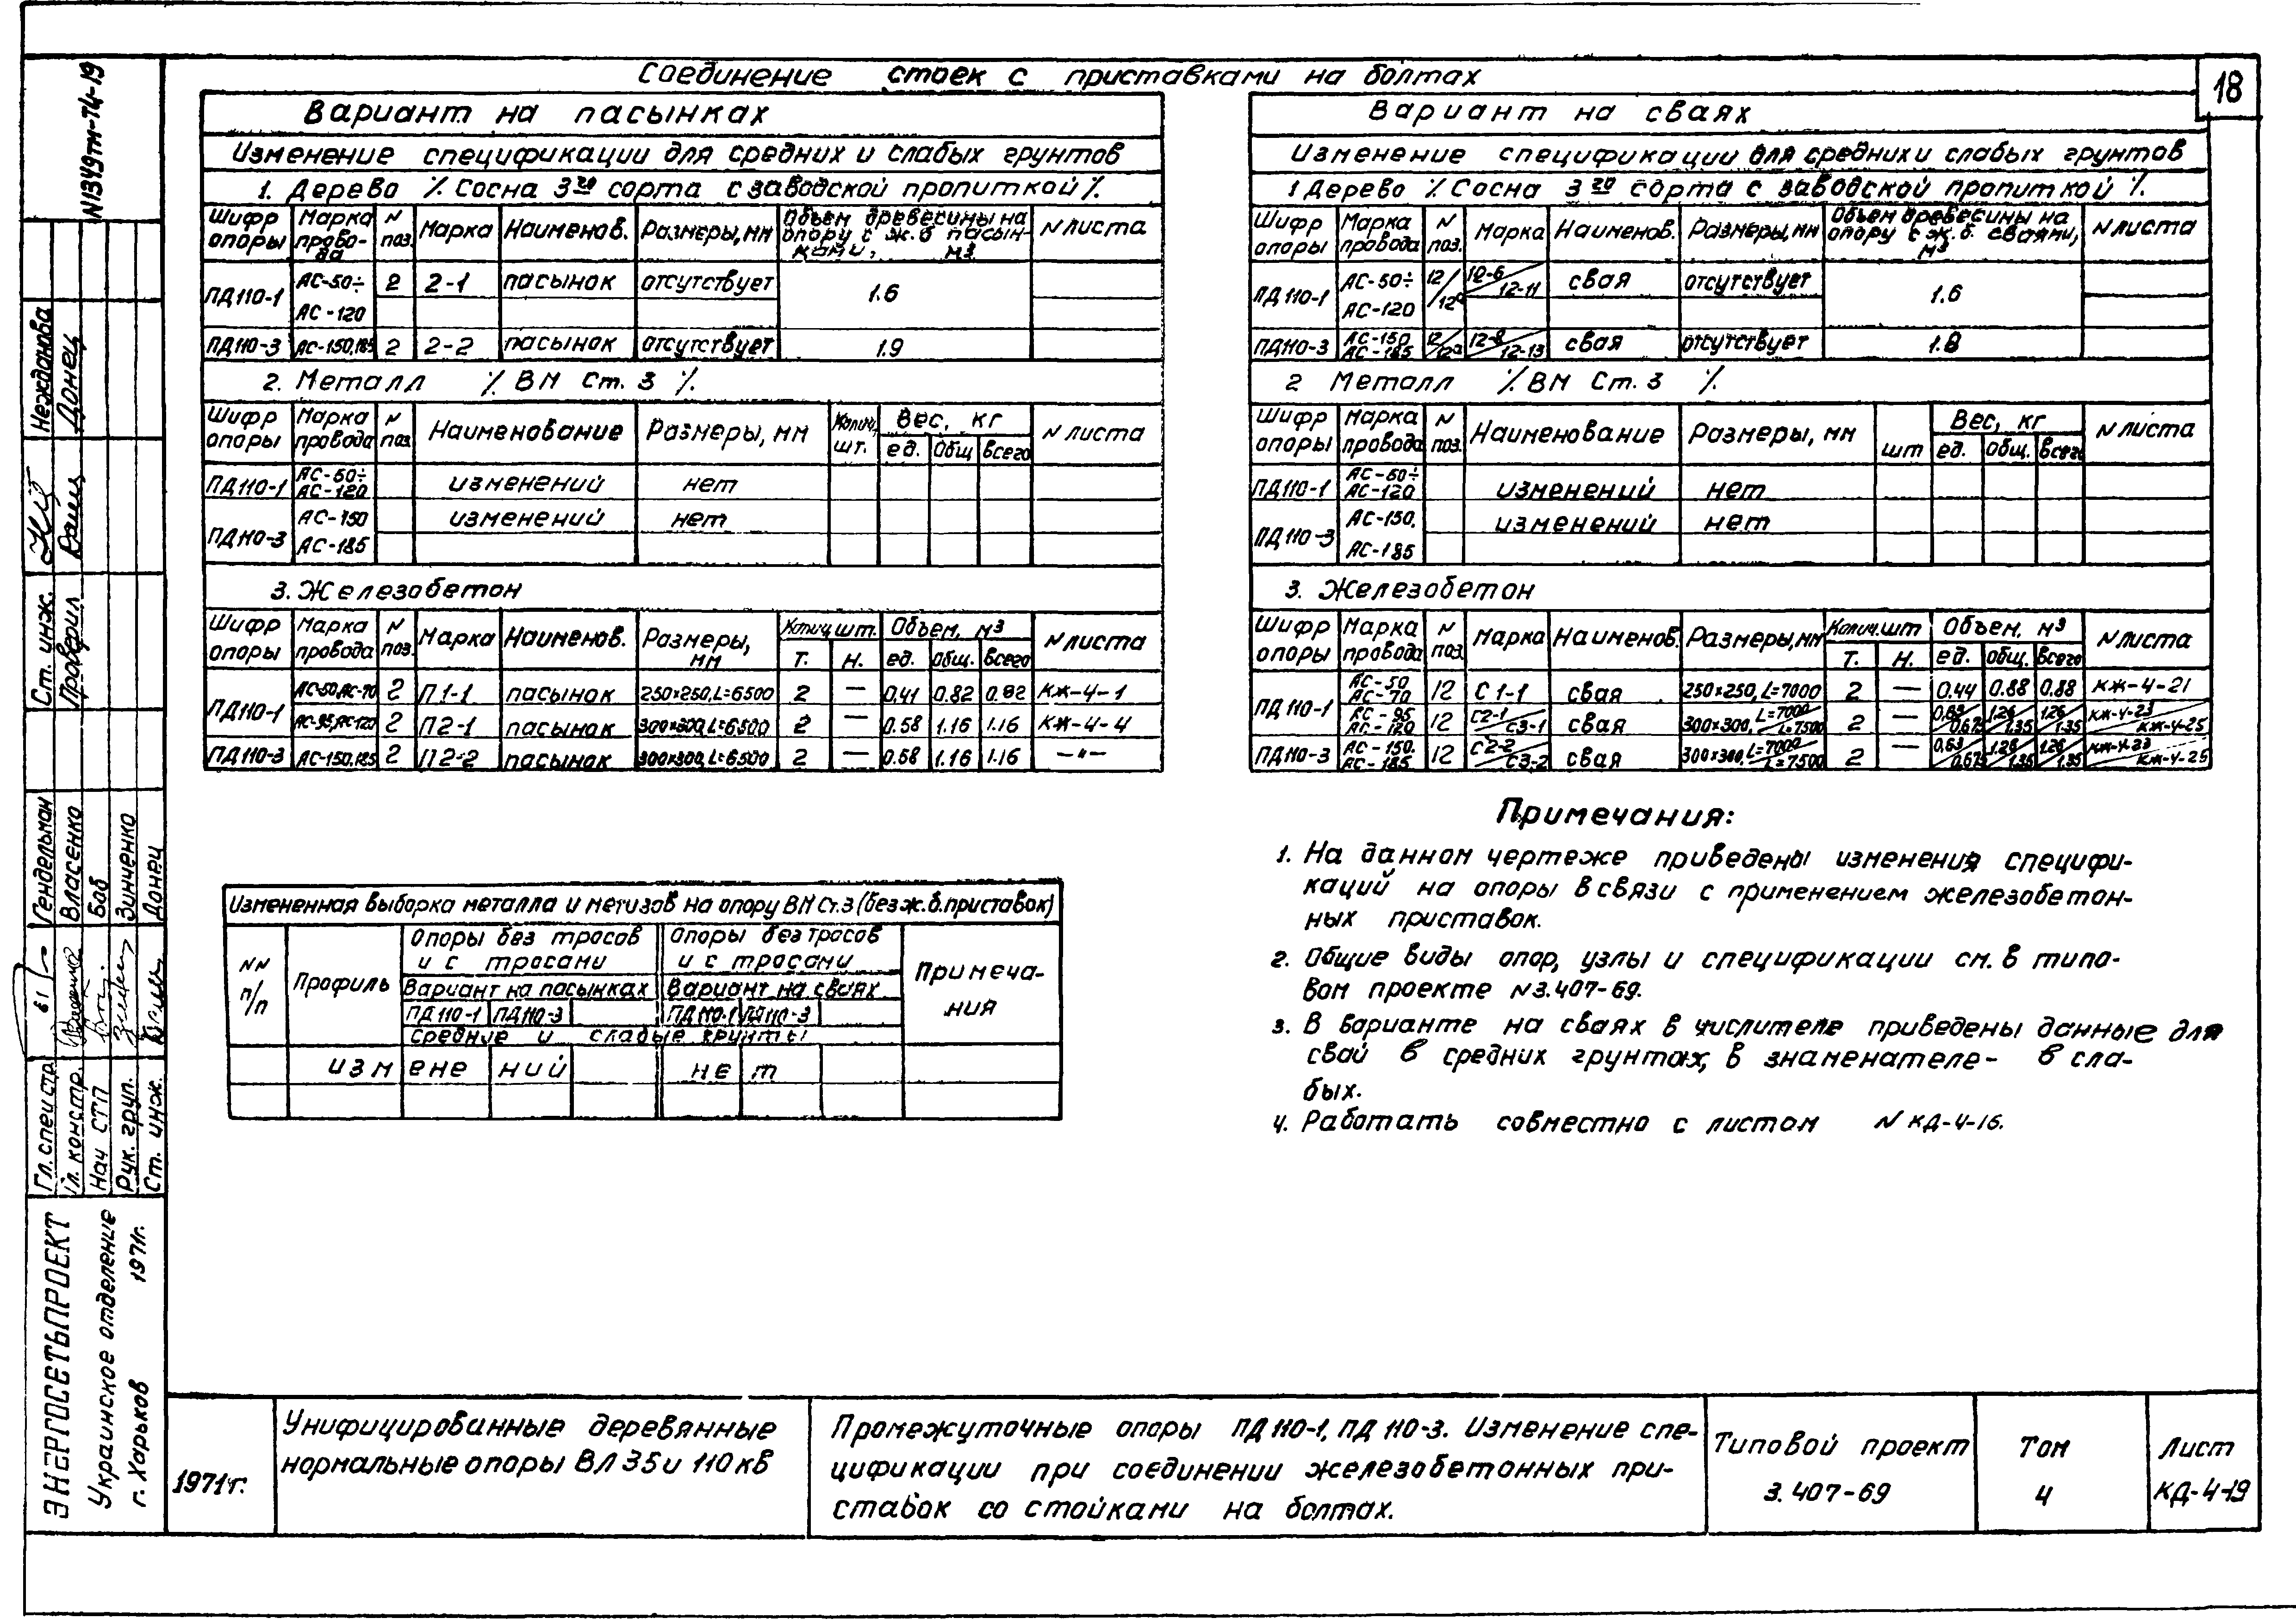 18
Соединение стоек с приставками на болтах
Вариант на пасынках
Изменение спецификации для средних и слабых грунтов
1. Дерево % Сосна 3го сорта с заводской пропиткой %.
Шифр опоры Марка провода N поз. Марка Наименов. Размеры, мм Объем древесины на опору с ж.б пасынками, м3 N листа
ПД110-1 АС-50÷ АС-120 2 2-1 пасынок отсутствует 1.6
ПД110-3 АС-150,185 2 2-2 пасынок отсутствует 1.9
2. Металл % ВМ Ст. 3 %
Шифр опоры Марка провода N поз. Наименование Размеры, мм Колич. шт. Вес, кг ед. Общ всего N листа
ПД110-1 АС-50÷ АС-120 изменений нет
ПД110-3 АС-150 АС-185 изменений нет
3. Железобетон
Шифр опоры Марка провода N поз. Марка Наименов. Размеры, мм Колич шт. Т. Н. Объем, м3 ед. общ. всего N листа
ПД110-1 АС-50,АС-70 2 П1-1 пасынок 250×250, L=6500 2 — 0.41 0.82 0.82 КЖ-4-1
АС-95,АС-120 2 П2-1 пасынок 300×300, L=6500 2 — 0.58 1.16 1.16 КЖ-4-4
ПД110-3 АС-150,185 2 П2-2 пасынок 300×300, L=6500 2 — 0.58 1.16 1.16 —"—
Вариант на сваях
Изменение спецификации для средних и слабых грунтов
1 Дерево % Сосна 3го сорта с заводской пропиткой %.
Шифр опоры Марка провода N поз. Марка Наименов. Размеры, мм Объем древесины на опору с ж.б. сваями, м3 N листа
ПД110-1 АС-50÷ АС-120 12/12а 12-6/12-11 свая отсутствует 1.6
ПД110-3 АС-150 АС-185 12/12а 12-8/12-13 свая отсутствует 1.8
2 Металл % ВМ Ст. 3 %
Шифр опоры Марка провода N поз. Наименование Размеры, мм шт Вес, кг ед. Общ. всего N листа
ПД110-1 АС-50÷ АС-120 изменений нет
ПД110-3 АС-150, АС-185 изменений нет
3. Железобетон
Шифр опоры Марка провода N поз. Марка Наименов. Размеры, мм Колич. шт Т. Н. Объем, м3 ед. общ. всего N листа
ПД110-1 АС-50 АС-70 12 С1-1 свая 250×250, L=7000 2 — 0.44 0.88 0.88 КЖ-4-21
АС-95 АС-120 12 С2-1/С3-1 свая 300×300, L=7000/L=7500 2 — 0.63/0.675 1.26/1.35 1.26/1.35 КЖ-4-23/КЖ-4-25
ПД110-3 АС-150. АС-185 12 С2-2/С3-2 свая 300×300, L=7000/L=7500 2 — 0.63/0.675 1.26/1.35 1.26/1.35 КЖ-4-23/КЖ-4-25
Измененная выборка металла и метизов на опору ВМ Ст.3 (без ж.б. приставок)
NN п/п Профиль Опоры без тросов и с тросами Опоры без тросов и с тросами Примечания
Вариант на пасынках Вариант на сваях
ПД110-1 ПД110-3 ПД110-1 ПД110-3
Средние и слабые грунты
изменений нет
Примечания:
1. На данном чертеже приведены изменения специфи-
каций на опоры в связи с применением железобетон-
ных приставок.
2. Общие виды опор, узлы и спецификации см. в типо-
вом проекте N3.407-69.
3. В варианте на сваях в числителе приведены данные для
свай в средних грунтах, в знаменателе- в сла-
бых.
4. Работать совместно с листом N КД-4-16.
1971г.
Унифицированные деревянные
нормальные опоры ВЛ 35 и 110 кв
Промежуточные опоры ПД110-1, ПД110-3. Изменение спе-
цификации при соединении железобетонных при-
ставок со стойками на болтах.
Типовой проект
3.407-69
Том
4
Лист
КД-4-19
N1349тм-Т4-19
Ст. инж. Нежданова
Проверил Донец
Гл. спец. стр. Гендельман
Гл. констр. Власенко
Нач СТП Боб
Рук. груп. Зинченко
Ст. инж. Донец
ЭНЕРГОСЕТЬПРОЕКТ
Украинское отделение
г. Харьков 1971г.